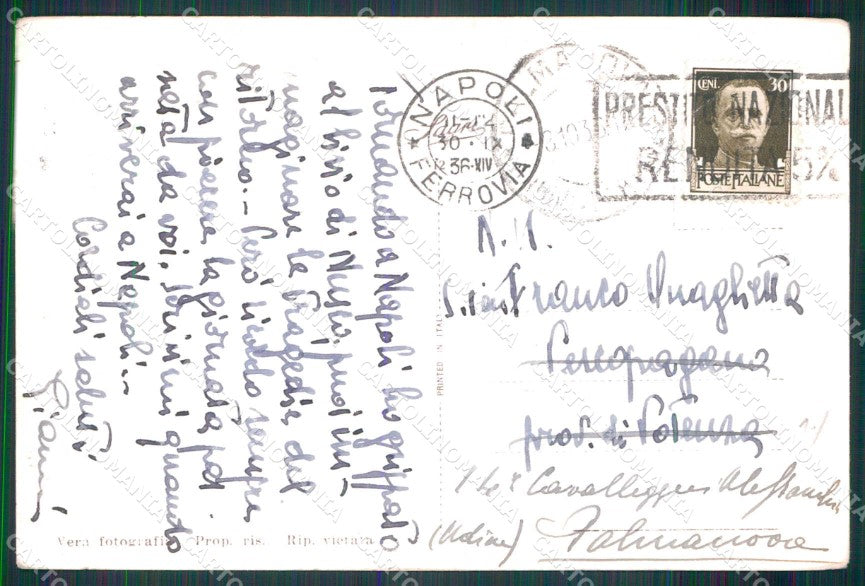 Tornando a Napoli ho grippato
al bivio di Nusco, puoi im-
maginare le tragedie del
ritorno.- Però ricordo sempre
con piacere la giornata pas-
sata da voi. Scrivimi quando
arriverai a Napoli.-
Cordiali saluti
Gianni
Vera fotografia Prop. ris. Rip. vietata
PRINTED IN ITALY
NAPOLI
30·IX
36·XIV
FERROVIA
PRESTITO NAZIONALE
RENDITA 5%
CENT. 30
POSTE ITALIANE
N. H.
Franco Quaglietta
Pescopagano
prov. di Potenza
14° Cavalleggeri Alessandria
(Udine) Palmanova
CARTOLINOMANIA